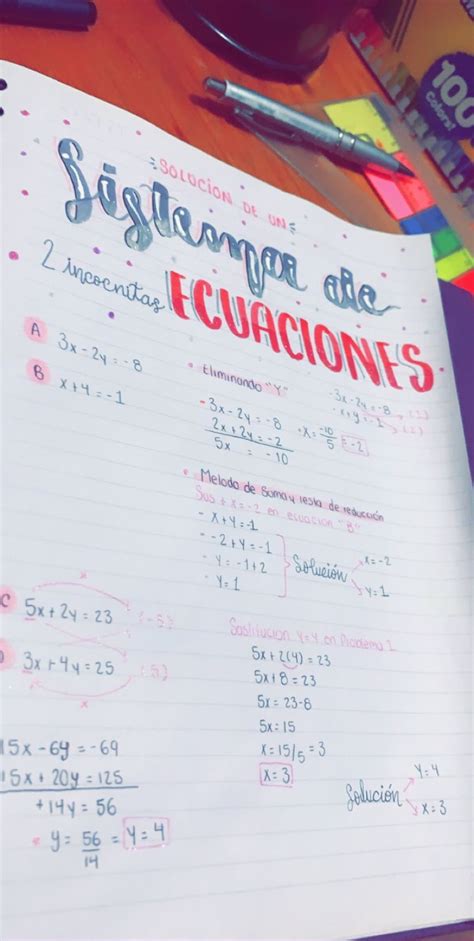 100
Colors!
SOLUCIÓN DE UN
Sistema de
2 incocnitas ECUACIONES
A 3x - 2y = -8
B x + y = -1
• Eliminando "Y"
- 3x - 2y = -8
2x + 2y = -2
5x = -10
• x = -10/5 = -2
- 3x - 2y = -8 (1)
- x + y = -1 (2)
• Metodo de suma y resta de reducción
Sus + x = -2 en ecuacion "B"
- x + y = -1
- -2 + y = -1
- y = -1 + 2
- y = 1
Solución x = -2
y = 1
C 5x + 2y = 23 (-5)
3x + 4y = 25
15x - 6y = -69
15x + 20y = 125
+14y = 56
y = 56/14 = y = 4
Sustitucion Y=4 en Problema 1
5x + 2(4) = 23
5x + 8 = 23
5x = 23 - 8
5x = 15
x = 15/5 = 3
x = 3
Solución y = 4
x = 3